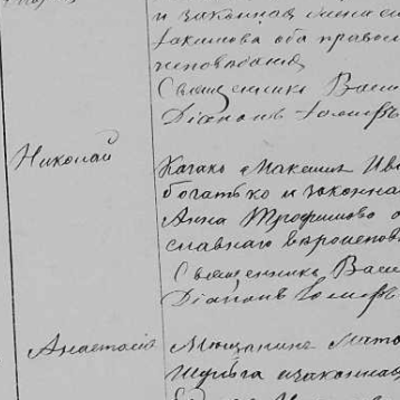 и законная жена е
Іакимова оба правосл
исповѣданія
Священникъ Васи
Діаконъ Іосифъ
Николай
Козакъ Максимъ Ива
богатько и законна
Анна Трофимова о
славнаго вѣроисповѣ
Священникъ Васи
Діаконъ Іосифъ
Анастасія
Мѣщанинъ Матѳ
и законная